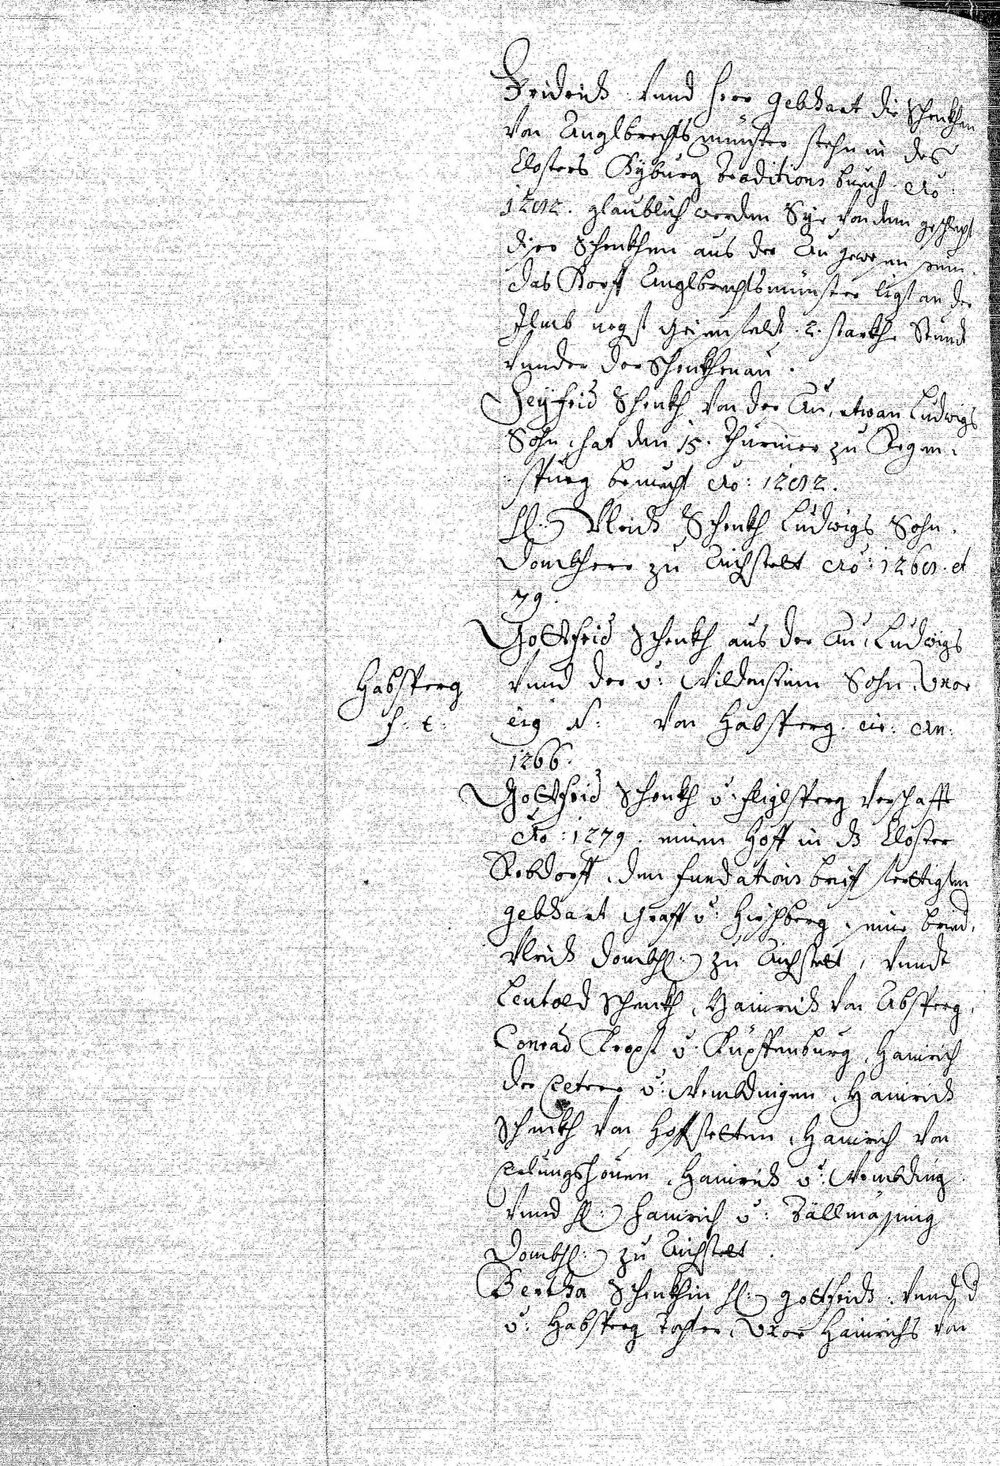 Fridrich vnnd herr Gebhart die Schenkhen
von Anglbrechtsmünster stehn in des
Closters Byburg traditions buech Ao:
1282. glaublich werden Sye von dem geschlecht
diser Schenkhen aus der Au gewesen sein.
das Dorff Anglbrechtsmünster ligt an der
Ilmb negst Geisenfeldt. 2. starkhe Stundt
vnnder der Schenkhenau.
Seyfrid Schenkh von der Au, etwan Ludwigs
Sohn, hat den 15. Thurnier zu Regen-
spurg besuecht Ao: 1282.
H: Vlrich Schenkh Ludwigs Sohn.
Dombherr zu Aichstett Ao: 1268. et
79.
Gottfrid Schenkh aus der Au, Ludwigs
vnnd der v: Wildenstein Sohn. Vxor
Habsperg
f. t.
eig N: von Habsperg. cir: An:
1266.
Gottfrid Schenkh v: Fliglsperg verschafft
Ao: 1279. einen Hoff in dz Closter
Rebdorff, den fundations brieff fertigten
Gebhart Graff v: Hirschberg, sein brued.
Vlrich Dombh: zu Aichstett, vnndt
Leutold Schenkh, Hainrich von Absperg,
Conrad Kropf v: Küpffenburg, Hainrich
der v: Wembdingen, Hainrich
Schenkh von Hoffstetten, Hainrich von
Hainrich v: Wembding
vnnd H: Hainrich v: Tällmässing
Dombh: zu Aichstett.
Bertha Schenkhin H: Gottfrids vnnd d
v: Habsperg Tochter, Vxor Hainrichs von